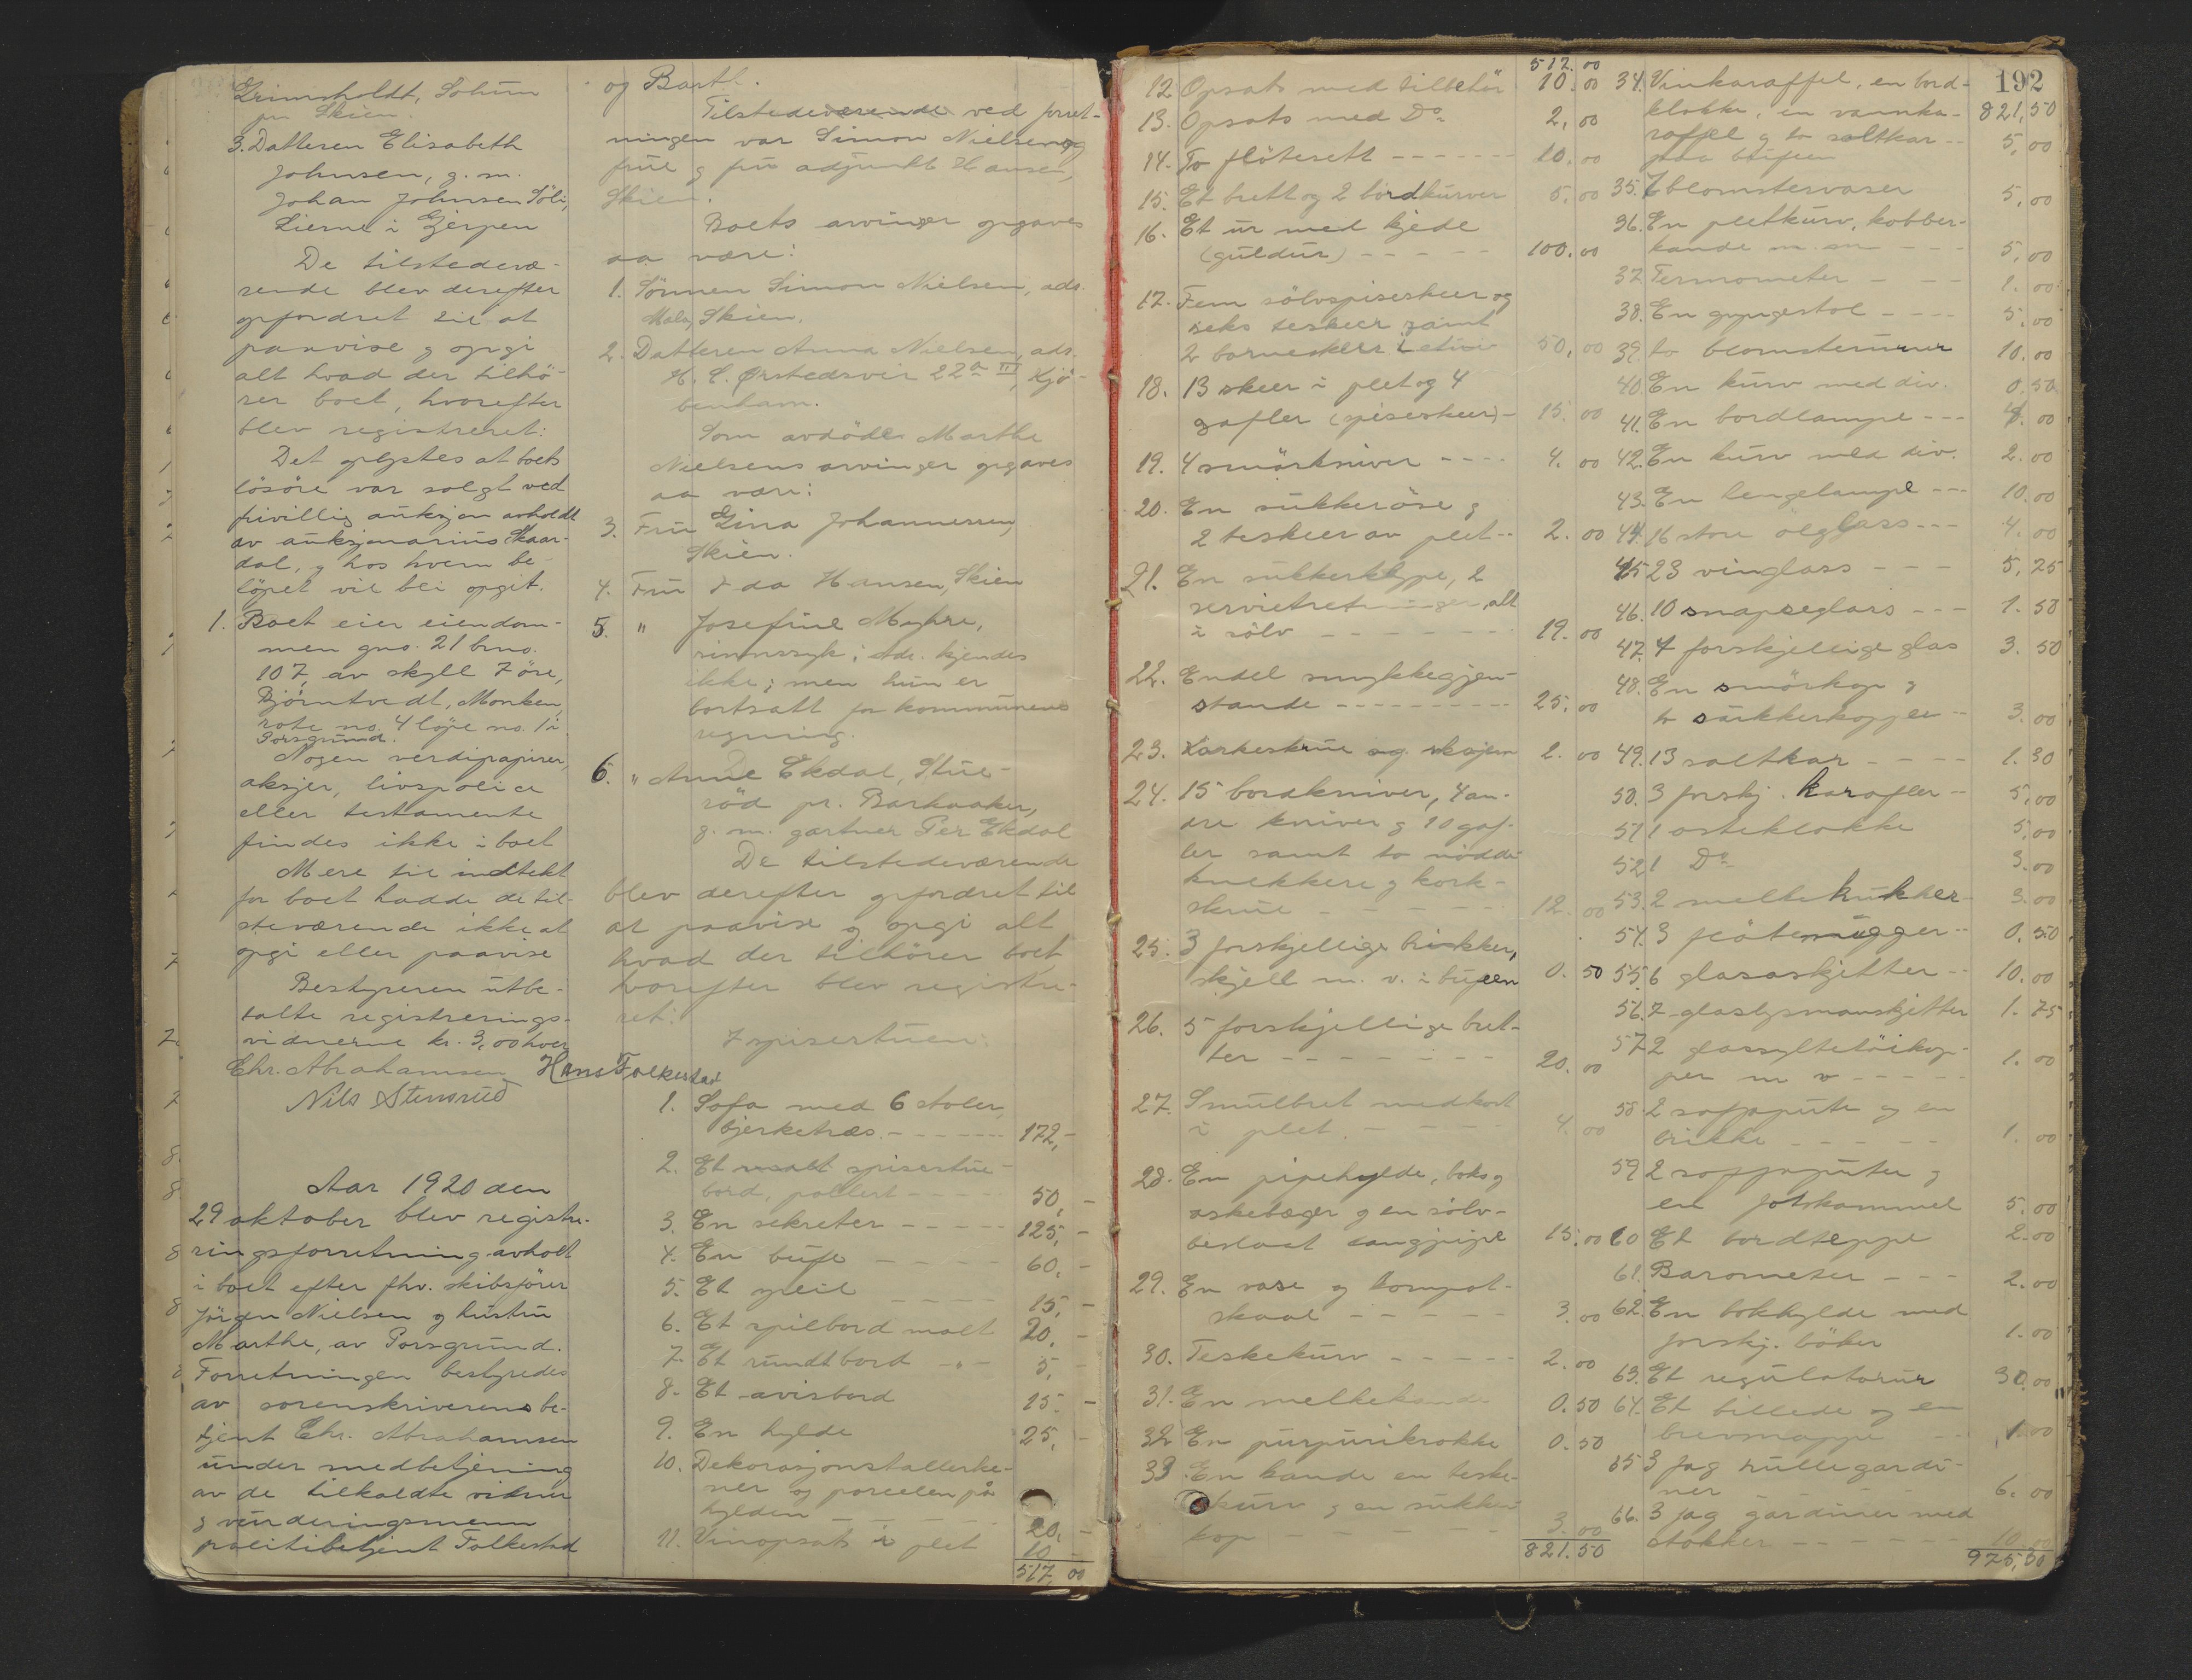 Grimsholdt, Solum
pr. Skien.
3. Datteren Elisabeth
Johnsen, g. m.
Johan Johnsen Söli,
Lierne i Gjerpen
De tilstedevæ-
rende blev derefter
opfordret til at
paavise og opgi
alt hvad der tilhö-
rer boet, hvorefter
blev registreret:
Det oplystes at boets
lösöre var solgt ved
frivillig auksjon avholdt
av auksjonarius Skaar-
dal, og hos hvem be-
löpet vil bli opgit.
1. Boet eier eiendom-
men gno. 21 bno.
107, av skyll 7 öre,
Björntvedt, Monken,
rote no. 4 löpe no. 1 i
Porsgrund.
Nogen verdipapirer,
aksjer, livspolice
eller testamente
findes ikke i boet
Mere til indtekt
for boet hadde de til-
steværende ikke at
opgi eller paavise
Bestyreren utbe-
talte registrerings-
vidnerne kr. 3,00 hver
Chr. Abrahamsen Hans Folkestad
Nils Stensrud
Aar 1920 den
29 oktober blev registre-
ringsforretning avholt
i boet efter fhv. skibsförer
Jörgen Nielsen og hustru
Marthe, av Porsgrund.
Forretningen bestyredes
av sorenskriverens be-
tjent Chr. Abrahamsen
under medbetjening
av de tilkaldte vidner
og vurderingsmenn
politibetjent Folkestad
og Barth.
Tilstedeværende ved forret-
ningen var Simon Nielsen og
frue og fru adjunkt Hansen,
Skien.
Boets arvinger opgaves
aa være:
1. Sönnen Simon Nielsen, ads.
Skien.
2. Datteren Anna Nielsen, ads.
H. C. Ørstedsvei 22a III, Kjö-
benhavn.
Som avdöde Marthe
Nielsens arvinger opgaves
aa være:
3. Fru Gina Johannessen,
Skien.
4. Fru Ida Hansen, Skien
5. " Josefine Myhre,
sinnssyk; Adr. kjendes
ikke; men hun er
bortsatt for kommunens
regning.
6. " Anne Ekdal, Stue-
röd pr. Barkaaker,
g. m. gartner Per Ekdal
De tilstedeværende
blev derefter opfordret til
at paavise og opgi alt
hvad der tilhörer boet,
hvorefter blev registre-
ret:
I spisestuen:
1. Sofa med 6 stoler,
bjerketræs. - - - 172,-
2. Et ovalt spisestue-
bord, polert - - - 50,-
3. En sekretær - - - 125,-
4. En bufe - - - 60,-
5. Et speil - - - 15,-
6. Et spilbord malt 20,-
7. Et rundt bord -"- 5,-
8. Et avisbord 15,-
9. En hylde 25,-
10. Dekorasjonstallerke-
ner og porcelen på
hylden - - - 20,-
11. Vinopsats i plet 10
517,00
192
517.00
12. Opsats med tilbehör 10.00
13. Opsats med Do 2,00
14. To flötesett - - - 10.00
15. Et brett og 2 bordkurver 5.00
16. Et ur med kjede
(guldur) - - - 100.00
17. Fem sölvspiseskeer og
seks teskeer samt
2 barneskeer i etui 50,00
18. 13 skeer i plet og 4
gafler (spiseskeer) - 15.00
19. 4 smörkniver - - - 4.00
20. En sukkeröse og
2 teskeer av plet - - 2.00
21. En sukkerklype, 2
alt
i sölv - - - 19.00
22. Endel smykkegjen-
stande - - - 25.00
23. 2.00
24. 15 bordkniver, 4 an-
dre kniver og 10 gaf-
ler samt to nödde-
knekkere og kork-
skrue - - - 12.00
25. 3 forskjellige brikker,
skjell m. v. i bufeen 0.50
26. 5 forskjellige bret-
ter - - - 20.00
27. Smulbret med kost
i plet. - - - 4.00
28. En pipehylde, boks og
askebæger og en sölv-
beslaat langpipe 15.00
29. En vase og kompot-
skaal - - - 3.00
30. Teskekurv - - - 2.00
31. En melkekande 0.50
32. En purpurikrokke 0.50
33. En kande en teske-
kurv og en sukker-
kop - - - 3.00
821.50
34. Vinkaraffel, en bord-
klokke, en vannka- 821,50
raffel og to saltkar - - 5,00
paa bufeen
35. 7 blomstervaser 5,00
36. En pletkurv, kobber-
kande m. m. - - - 5,00
37. Termometer - - - 1.00
38. En gyngestol - - - 5.00
39. to blomsterurner 10.00
40. En kurv med div. 0.50
41. En bordlampe - - - .00
42. En kurv med div. 2.00
43. En hengelampe - - - 10.00
44. 16 store ölglass - - - 4.00
45. 23 vinglass - - - 5,25
46. 10 snapseglass - - - 1.50
47. 7 forskjellige glas 3.50
48. En smörkop og
to sukkerkopper - 3.00
49. 13 saltkar - - - 1.30
50. 3 forskj. karafler - - 5,00
51. 1 osteklokke 5,00
52. 1 Do 3.00
53. 2 melkekrukker 3.00
54. 3 flötemugger - - 0.50
55. 6 glasaskjetter - - 10.00
56. 7 glaslysmanskjetter 1.75
57. 2 glassyltetöikop-
per m v - - - 1.00
58. 2 sofapute og en
brikke - - - 1.00
59. 2 sofaputer og
en fotskammel 5.00
60. Et bordteppe 2.00
61. Barometer - - - 2.00
62. En bokhylde med
forskj. böker 1.00
63. Et regulatorur 30.00
64. Et billede og en
brevmappe 1.00
65. 3 fag rullegardi-
ner 6.00
66. 3 fag gardiner med
stokker - - - 10.00
975,30